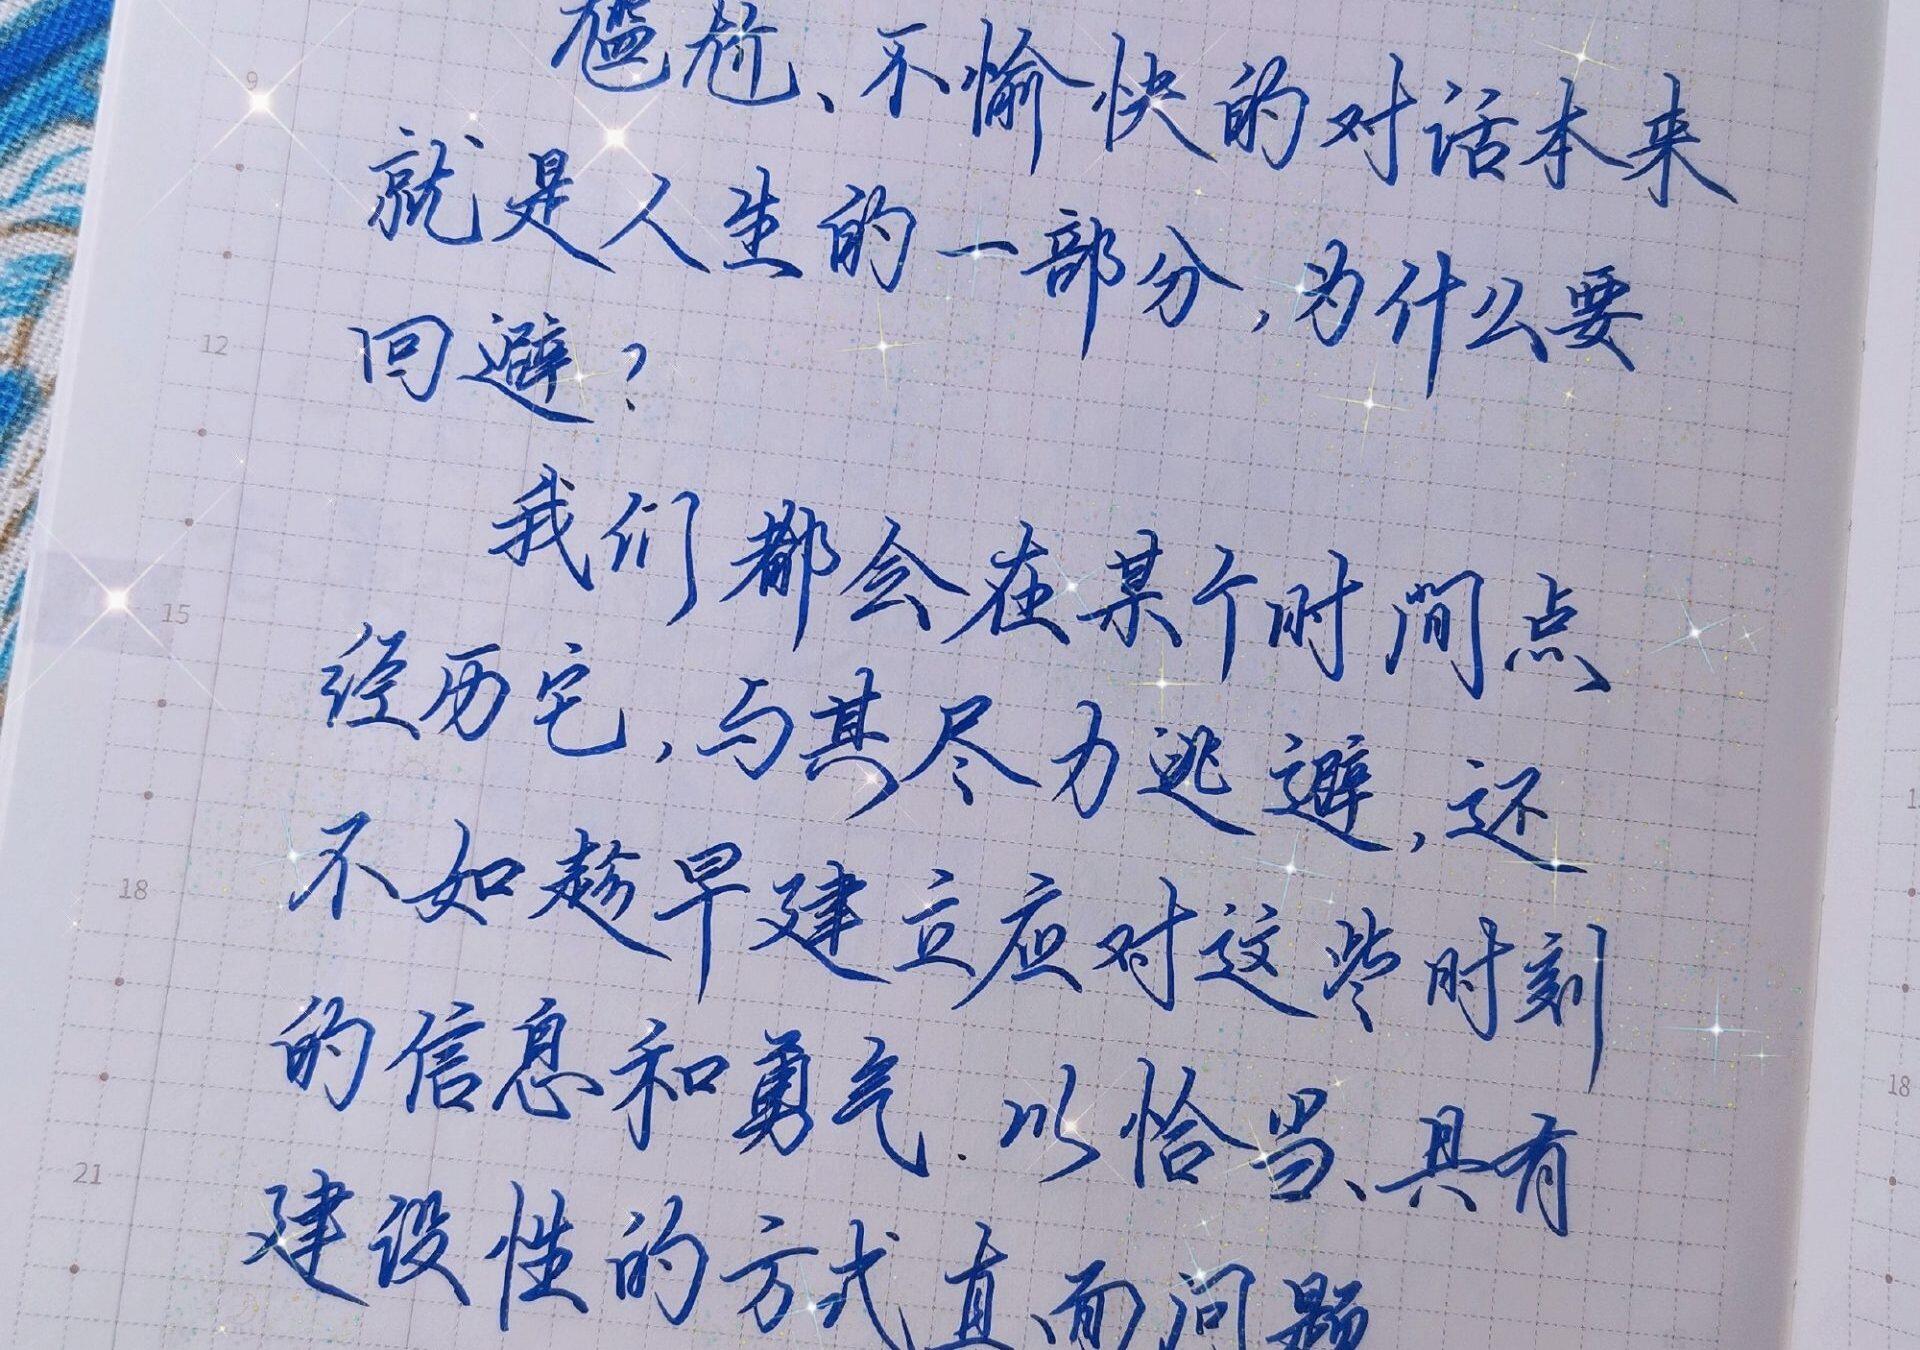 尴尬、不愉快的对话本来
就是人生的一部分,为什么要
回避?
我们都会在某个时间点
经历它,与其尽力逃避,还
不如趁早建立应对这些时刻
的信息和勇气.以恰当、具有
建设性的方式直面问题
9
12
15
18
21
18